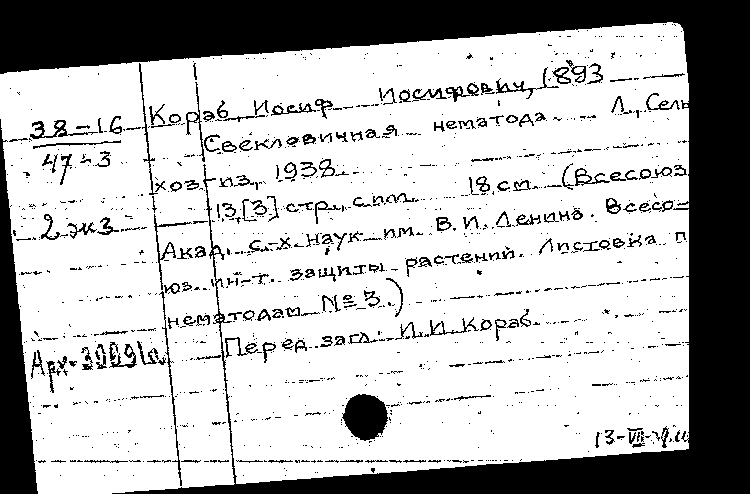 38-16
47-3
2 экз
Арх-30091а
Кораб, Иосиф Иосифович, 1893
Свекловичная нематода. Л., Сель
хозгиз, 1938.
13,[3] стр., с илл. 18 см. (Всесоюз
Акад. с.-х. наук им. В. И. Ленина. Всесо-
юз. ин-т. защиты растений. Листовка п
нематодам № 3.)
Перед загл.: И. И. Кораб.